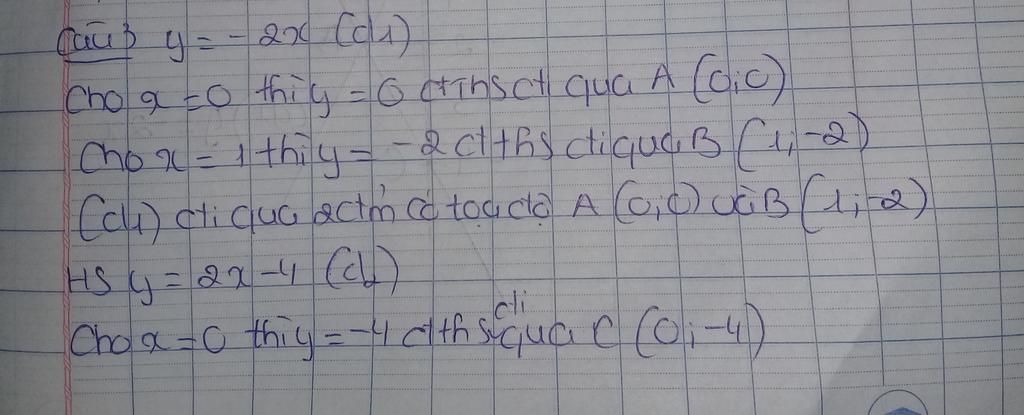 Câu 3 y = -2x (d1)
Cho x = 0 thì y = 0 đths đi qua A (0;0)
Cho x = 1 thì y = -2 đths đi qua B (1;-2)
(d1) đi qua 2 đ'm có toạ độ A (0;0) và B (1;-2)
HS y = 2x - 4 (d2)
Cho x = 0 thì y = -4 đths đi qua C (0;-4)